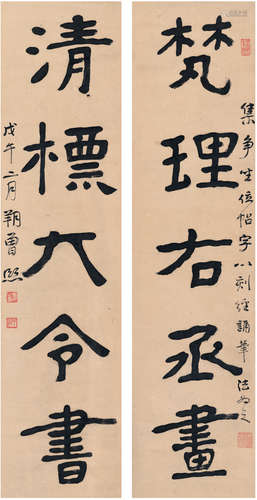 梵理右丞畫
集争坐位帖字以刻經誦筆法為之
清標大令書
戊午二月朔曾熙